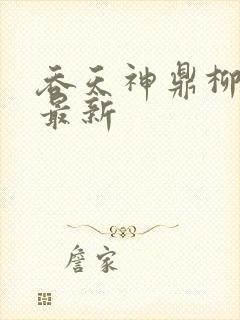 吞天神鼎柳
最新
詹家